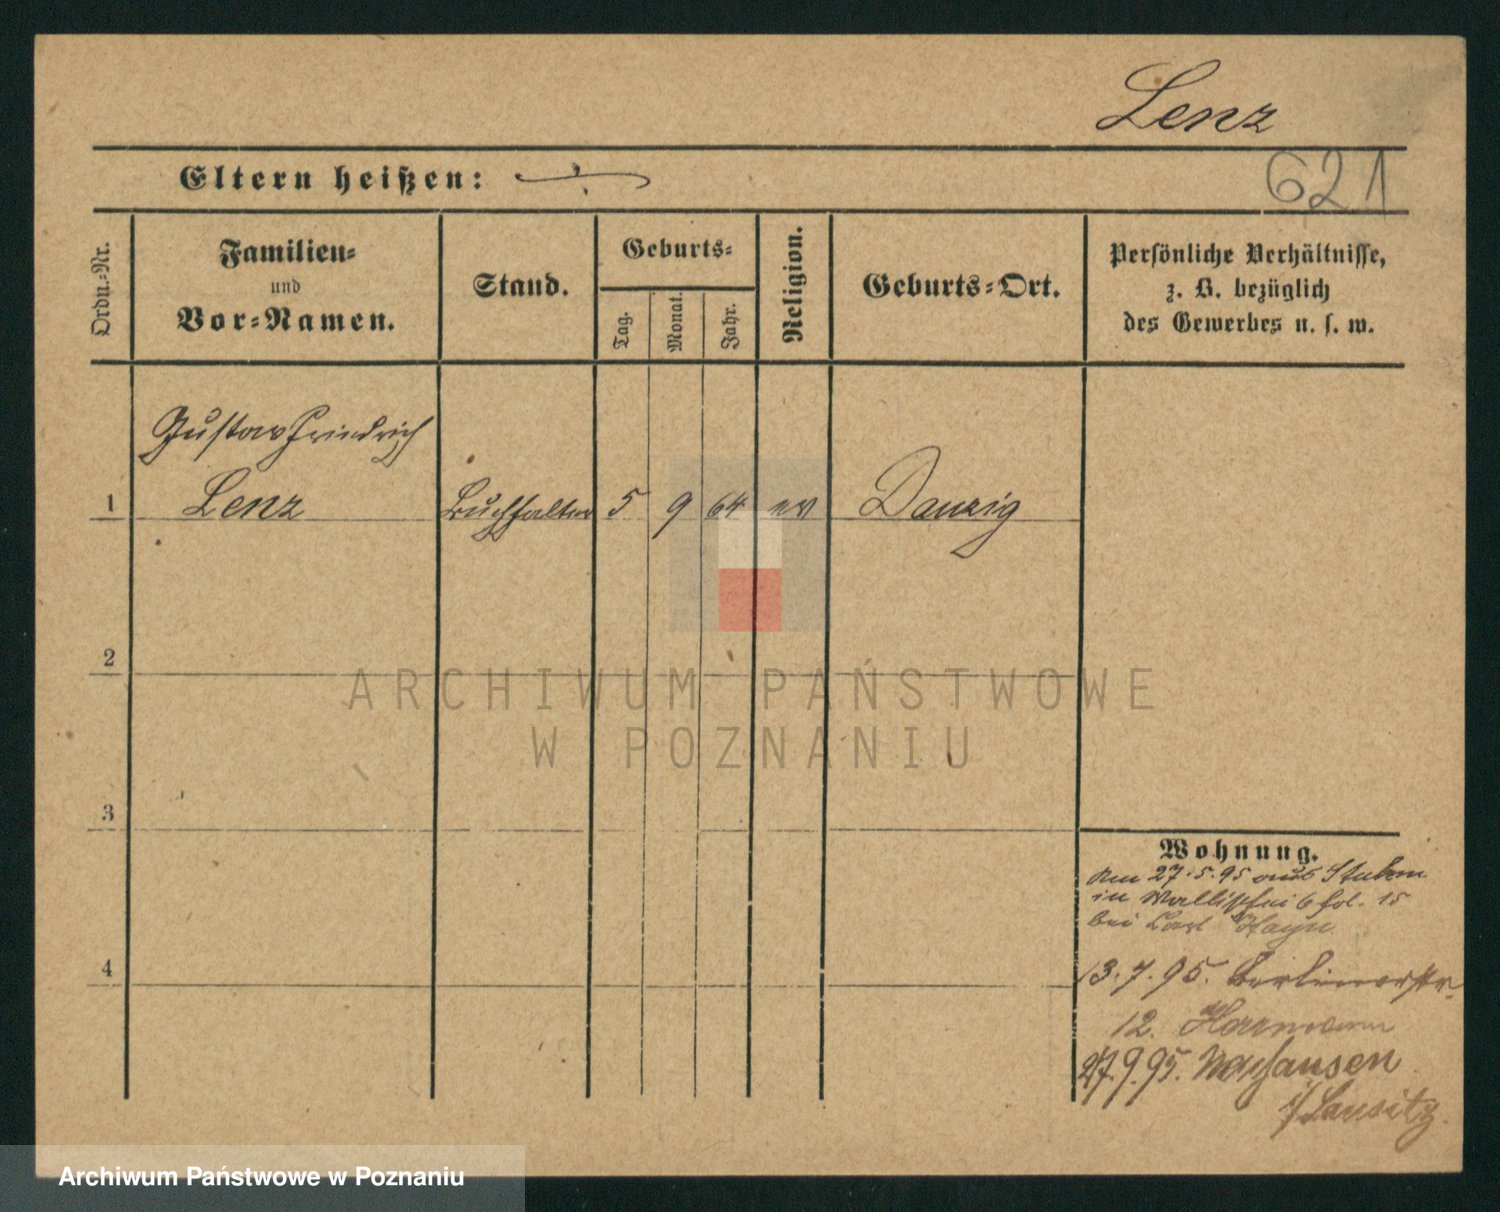 Lenz
621
Eltern heißen: ÷
Ordn.-Nr.
Familien-
und
Vor-Namen.
Stand.
Geburts-
Tag.
Monat.
Jahr.
Religion.
Geburts-Ort.
Persönliche Verhältnisse,
z. B. bezüglich
des Gewerbes u. s. w.
Gustav Friedrich
1 Lenz Buchhalter 5 9 64 ev Danzig
2
3
4
Wohnung.
Am 27.5.95 aus Stuhm
in Wallischei 6 bei Carl Hayn
13.7.95. Berlinerstr.
12. Herrmann
27.9.95. Neuhausen
i/Lausitz.
ARCHIWUM PAŃSTWOWE
W POZNANIU
Archiwum Państwowe w Poznaniu